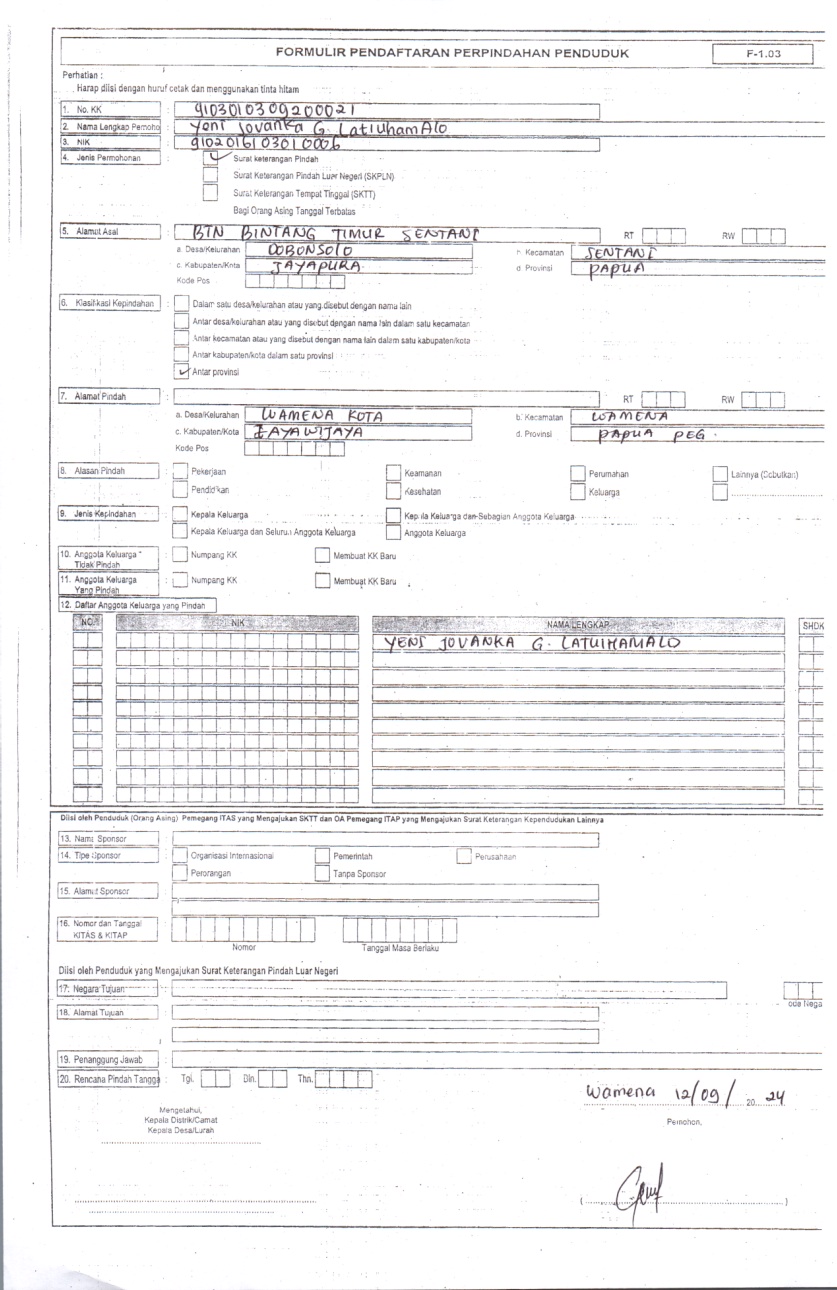 FORMULIR PENDAFTARAN PERPINDAHAN PENDUDUK F-1.03
Perhatian :
Harap diisi dengan huruf cetak dan menggunakan tinta hitam
1. No. KK : 9103010309200021
2. Nama Lengkap Pemoho : Yeni Jovanka G. LatiuhamAlo
3. NIK : 9102016103010006
4. Jenis Permohonan : Surat keterangan Pindah
Surat Keterangan Pindah Luar Negeri (SKPLN)
Surat Keterangan Tempat Tinggal (SKTT)
Bagi Orang Asing Tanggal Terbatas
5. Alamat Asal : BTN BINTANG TIMUR SENTANI RT RW
a. Desa/Kelurahan DOBONSOLO b. Kecamatan SENTANI
c. Kabupaten/Kota JAYAPURA d. Provinsi PAPUA
Kode Pos
6. Klasifikasi Kepindahan : Dalam satu desa/kelurahan atau yang disebut dengan nama lain
Antar desa/kelurahan atau yang disebut dengan nama lain dalam satu kecamatan
Antar kecamatan atau yang disebut dengan nama lain dalam satu kabupaten/kota
Antar kabupaten/kota dalam satu provinsi
Antar provinsi
7. Alamat Pindah : RT RW
a. Desa/Kelurahan WAMENA KOTA b. Kecamatan WAMENA
c. Kabupaten/Kota JAYAWIJAYA d. Provinsi PAPUA PEG.
Kode Pos
8. Alasan Pindah : Pekerjaan Keamanan Perumahan Lainnya (Sebutkan)
Pendidikan Kesehatan Keluarga
9. Jenis Kepindahan : Kepala Keluarga Kepala Keluarga dan Sebagian Anggota Keluarga
Kepala Keluarga dan Seluruh Anggota Keluarga Anggota Keluarga
10. Anggota Keluarga : Numpang KK Membuat KK Baru
Tidak Pindah
11. Anggota Keluarga : Numpang KK Membuat KK Baru
Yang Pindah
12. Daftar Anggota Keluarga yang Pindah
NO. NIK NAMA LENGKAP SHDK
YENI JOVANKA G. LATUIHAMALO
Diisi oleh Penduduk (Orang Asing) Pemegang ITAS yang Mengajukan SKTT dan OA Pemegang ITAP yang Mengajukan Surat Keterangan Kependudukan Lainnya
13. Nama Sponsor :
14. Tipe Sponsor : Organisasi Internasional Pemerintah Perusahaan
Perorangan Tanpa Sponsor
15. Alamat Sponsor :
16. Nomor dan Tanggal :
KITAS & KITAP
Nomor Tanggal Masa Berlaku
Diisi oleh Penduduk yang Mengajukan Surat Keterangan Pindah Luar Negeri
17. Negara Tujuan :
ode Nega
18. Alamat Tujuan :
19. Penanggung Jawab :
20. Rencana Pindah Tangga : Tgl. Bln. Thn.
Wamena 12/09/ 20 24
Mengetahui,
Kepala Distrik/Camat
Kepala Desa/Lurah
Pemohon,